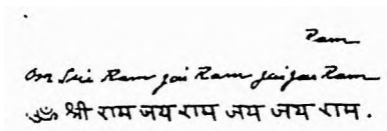 Ram
Om Sri Ram jai Ram jai jai Ram
ॐ श्री राम जय राम जय जय राम.